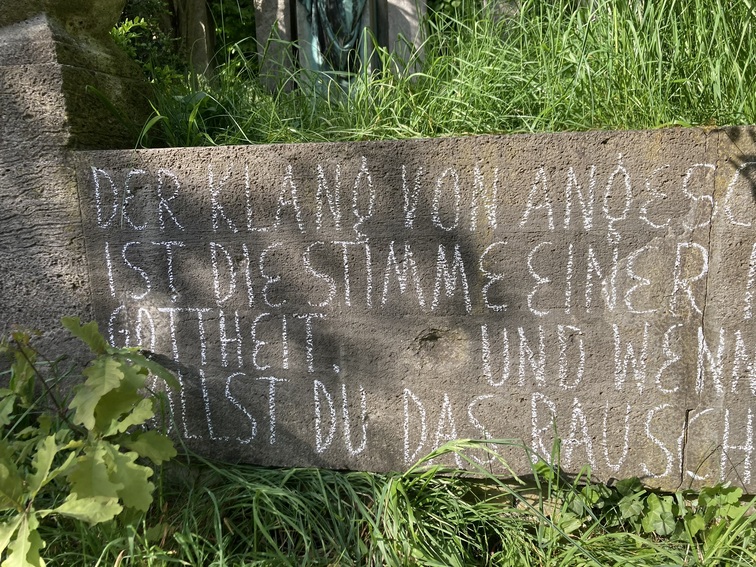 DER KLANG VON ANGESC
IST DIE STIMME EINER
GOTTHEIT. UND WENN
FÄLLST DU DAS RAUSCH